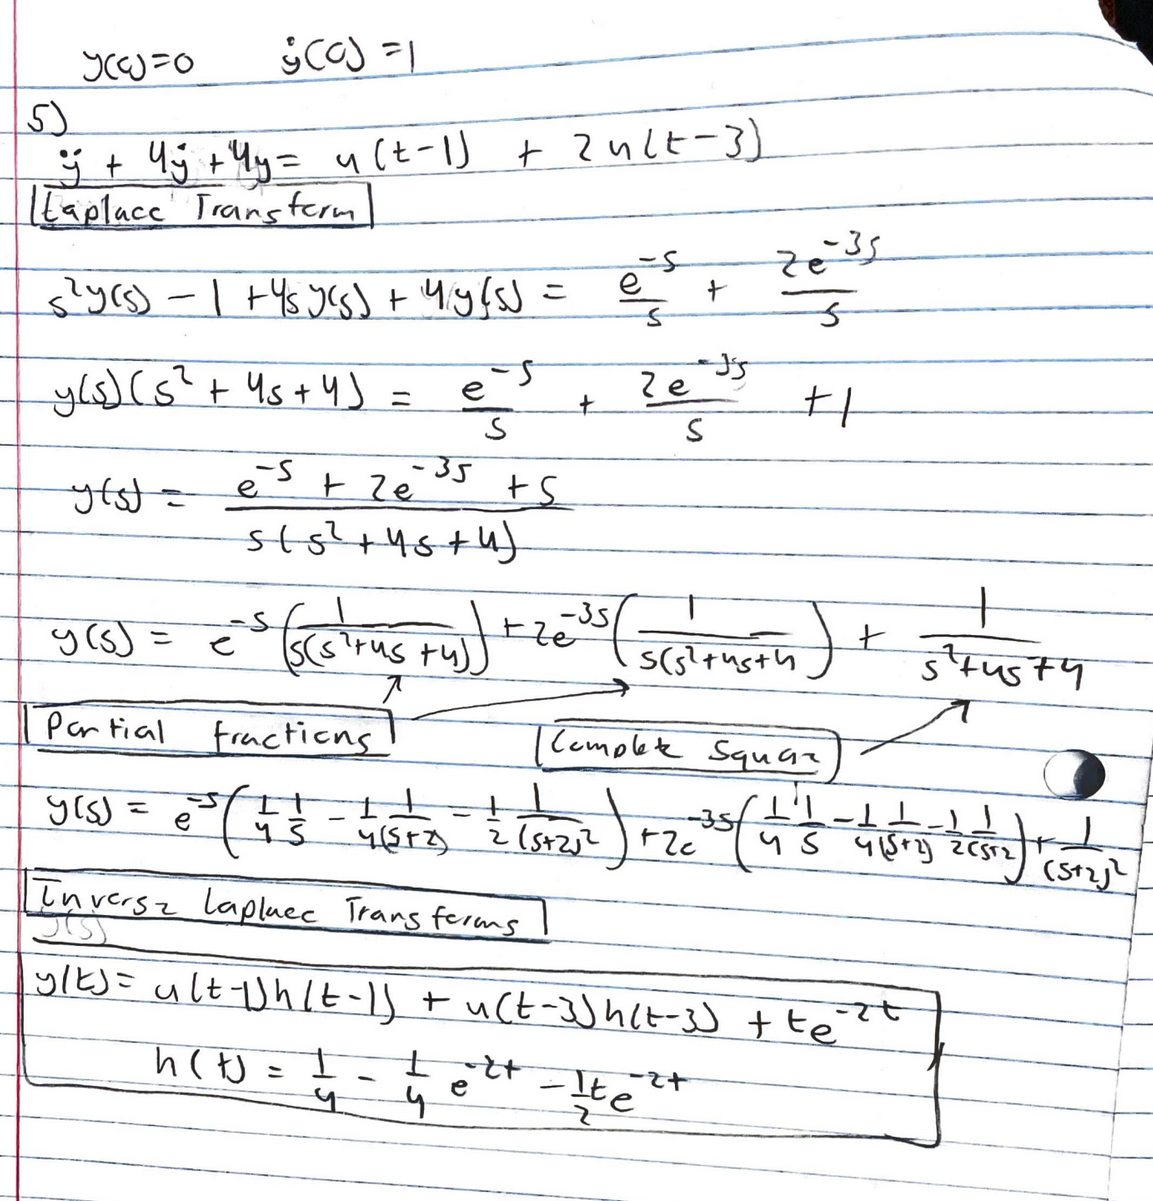 y(0)=0 ẏ(0)=1
5)
ÿ + 4ẏ + 4y = u(t-1) + 2u(t-3)
Laplace Transform
s²y(s) - 1 + 4s y(s) + 4y(s) = e^{-s}/s + 2e^{-3s}/s
y(s)(s² + 4s + 4) = e^{-s}/s + 2e^{-3s}/s + 1
y(s) = (e^{-s} + 2e^{-3s} + s)/(s(s² + 4s + 4))
y(s) = e^{-s}(1/(s(s²+4s+4))) + 2e^{-3s}(1/(s(s²+4s+4)) + 1/(s²+4s+4)
Partial fractions
Complete Square
y(s) = e^{-s}(1/4 1/s - 1/4 1/(s+2) - 1/2 1/(s+2)²) + 2e^{-3s}(1/4 1/s - 1/4 1/(s+2) - 1/2 1/(s+2) + 1/(s+2)²
Inverse Laplace Transforms
y(s)
y(t) = u(t-1)h(t-1) + u(t-3)h(t-3) + te^{-2t}
h(t) = 1/4 - 1/4 e^{-2t} - 1/2 te^{-2t}